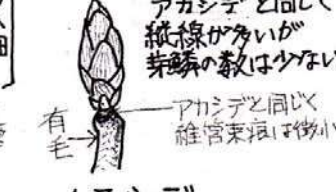 アカシデと同じく
縦線が多いが
芽鱗の数は少ない
アカシデと同じく
維管束痕は微小
有
毛